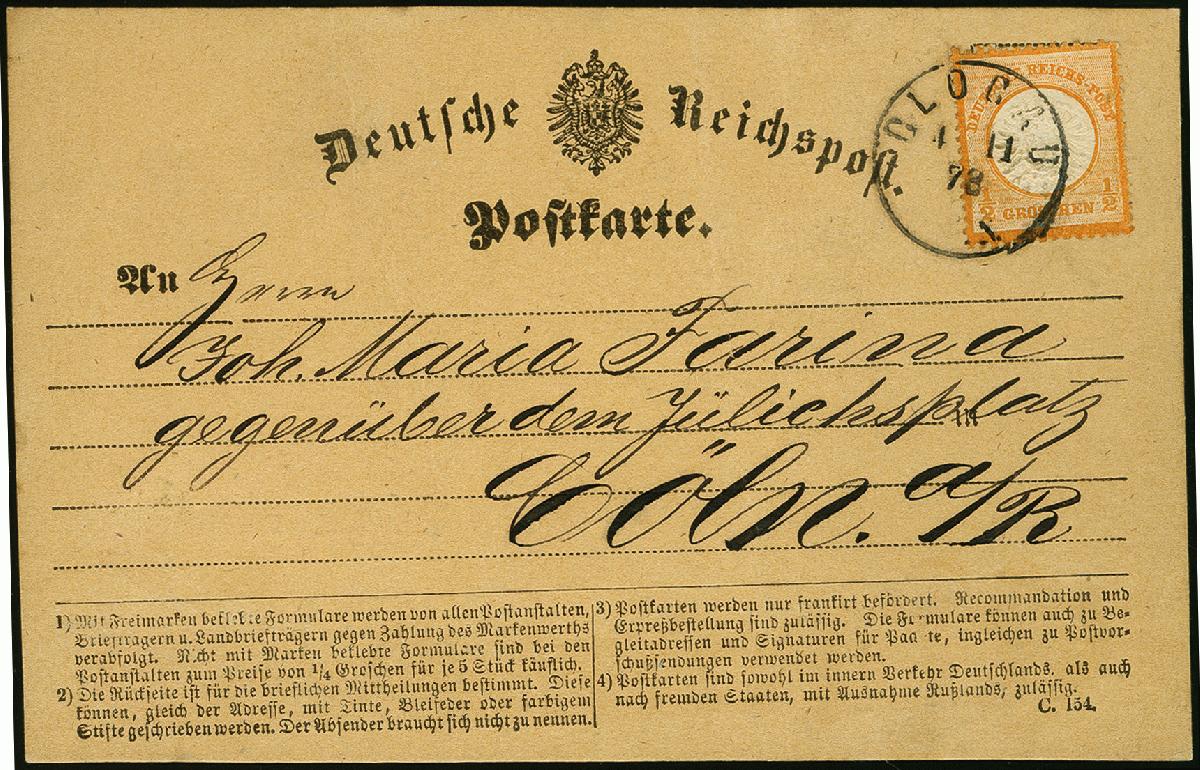 Deutsche Reichspost.
Postkarte.
DEUTSCHE REICHS-POST
½ GROSCHEN ½
GLOGAU
4 11
73
1
An Herrn
Joh. Maria Farina
gegenüber dem Jülichsplatz
in
Cöln. a/R
1) Mit Freimarken beklebte Formulare werden von allen Postanstalten,
Briefträgern u. Landbriefträgern gegen Zahlung des Markenwerths
verabfolgt. Nicht mit Marken beklebte Formulare sind bei den
Postanstalten zum Preise von ¼ Groschen für je 5 Stück käuflich.
2) Die Rückseite ist für die brieflichen Mittheilungen bestimmt. Diese
können, gleich der Adresse, mit Tinte, Bleifeder oder farbigem
Stifte geschrieben werden. Der Absender braucht sich nicht zu nennen.
3) Postkarten werden nur frankirt befördert. Recommandation und
Expreßbestellung sind zulässig. Die Formulare können auch zu Be-
gleitadressen und Signaturen für Packete, ingleichen zu Postvor-
schußsendungen verwendet werden.
4) Postkarten sind sowohl im innern Verkehr Deutschlands, als auch
nach fremden Staaten, mit Ausnahme Rußlands, zulässig.
C. 154.